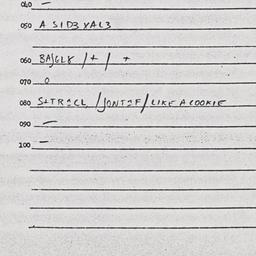 040 —
050 A SID3 YAL3
060 BAJGLY / + / +
070 0
080 S+TR2CL / JONT2F / LIKE A COOKIE
090 —
100 —